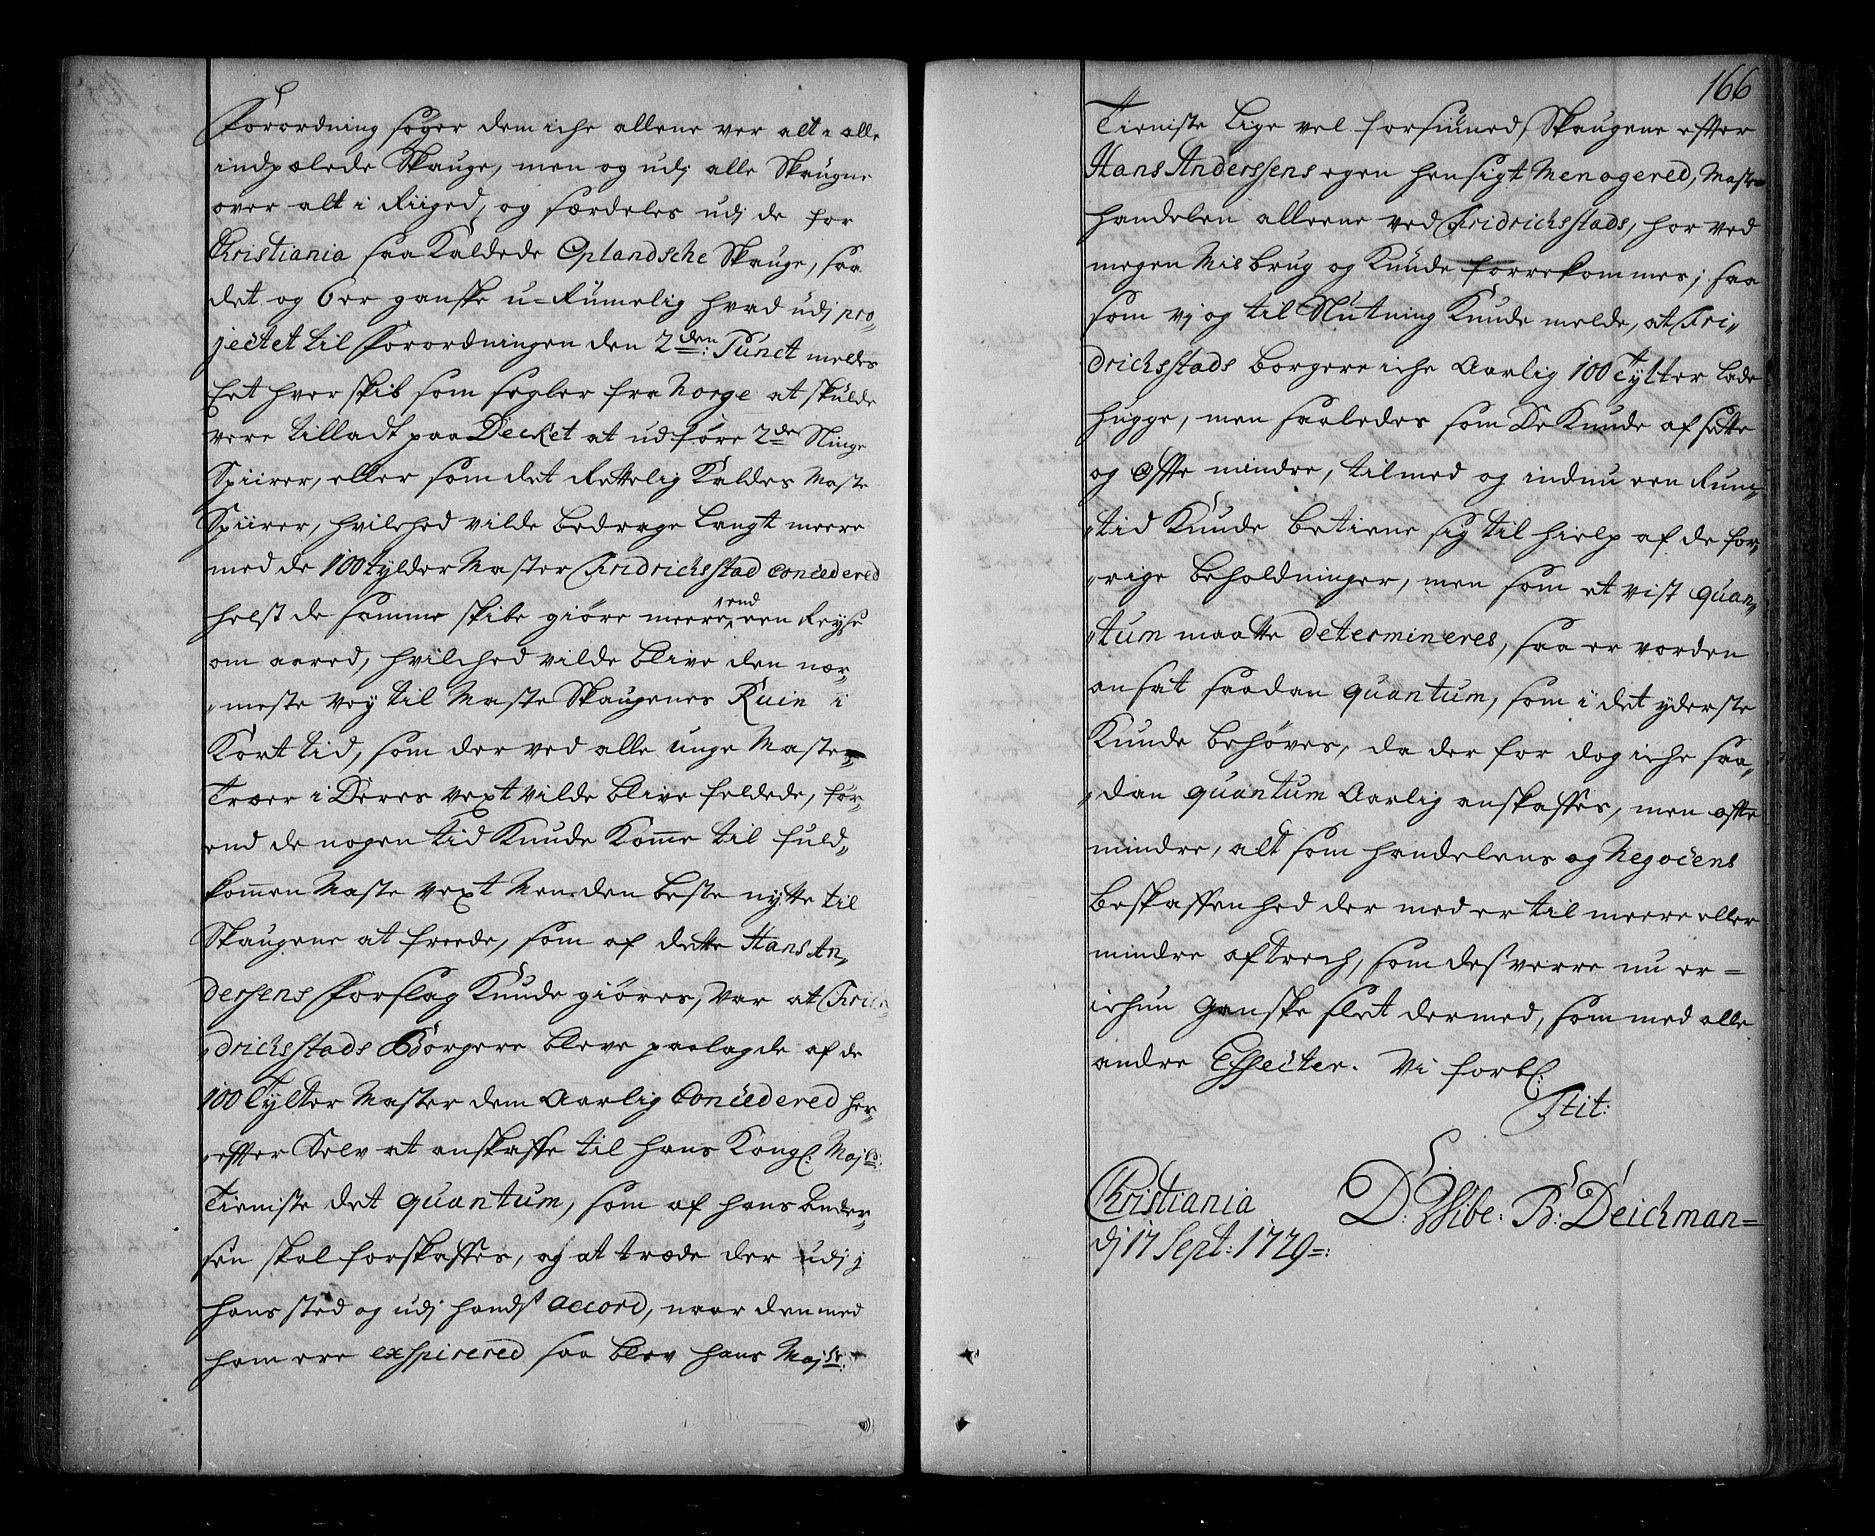 Forordning søger dem iche allene ver alt i alle
indpælede Skauge, men og udj alle Skaugne
over alt i Riiged, og særdeles udj de for
Christiania saa Kaldede Oplandsche Skauge, saa
det og er ganske u-Rümelig hvad udj pro,,
jectet til Forordningen den 2den: Punct meldes
Eet hver skib som segler fra Norge at skulde
vere tilladt paa Decket at udføre 2de Ninge
Spiirer, eller som det Rettelig Kaldes Maste
Spiirer, hvilched vilde bedrage langt meere
med de 100 tylder Master Fridrichsstad Concedered
helst de samme skibe giøre meere end een Reyse
om aared, hvilched vilde blive den nær,,
,,meste vey til Maste Skaugenes Ruin i
Kort tid, som der ved alle unge Maste,,
Træer i Deres vext vilde blive feldede, før,,
end de nogen tid Kunde Komme til fuld,,
kommen Maste vext Men den beste nytte til
Skaugene at freede, som af dette Hans An,,
dersens Forslag Kunde giøres, var at Fri,,
,,drichsstads Borgere bleve paalagde af de
100 Tylter Master dem Aarlig Concedered her,,
,,efter Selv at anskaffe til hans Kongl: Majts:
Tieniste det quantum, som af hans Ander,,
sen skal forskaffes, og at træde der udj i
hans sted og udj hands accord, naar den med
ham ere exspirered saa blev hans Majts:
166
Tieniste lige vel forsiuned, Skaugene efter
Hans Anderssens egen hensigt Menagered, Maste
handelen alleene ved Fridrichsstads, hor ved
megen Misbrug og Kunde forrekommes; saa
som vj og til Slutning Kunde melde, at Fri,,
drichsstads borgere iche Aarlig 100 Tylter lade
hugge, men saaledes som De Kunde af sette
og Offte mindre, tilmed og indnu een Rum,,
,,tid Kunde betiene sig til hielp af de for,,
,,rige beholdninger, men som et vist quan,,
,,tum maatte determineres, saa er vorden
ansat saadan quantum, som i det yderste
Kunde behøves, da der for dog iche saa,,
,,dan quantum Aarlig anskaffes, men offte
mindre, alt som handelens og Negocens
beskaffenhed der med er til meere eller
mindre aftrech, som desverre nu er=
ichun ganske slet dermed, som med alle
andre Effecter. Vi forbl:
Tit:
Christiania
dj 17 Sept: 1729=:
D: Wibe: B: Deichman=